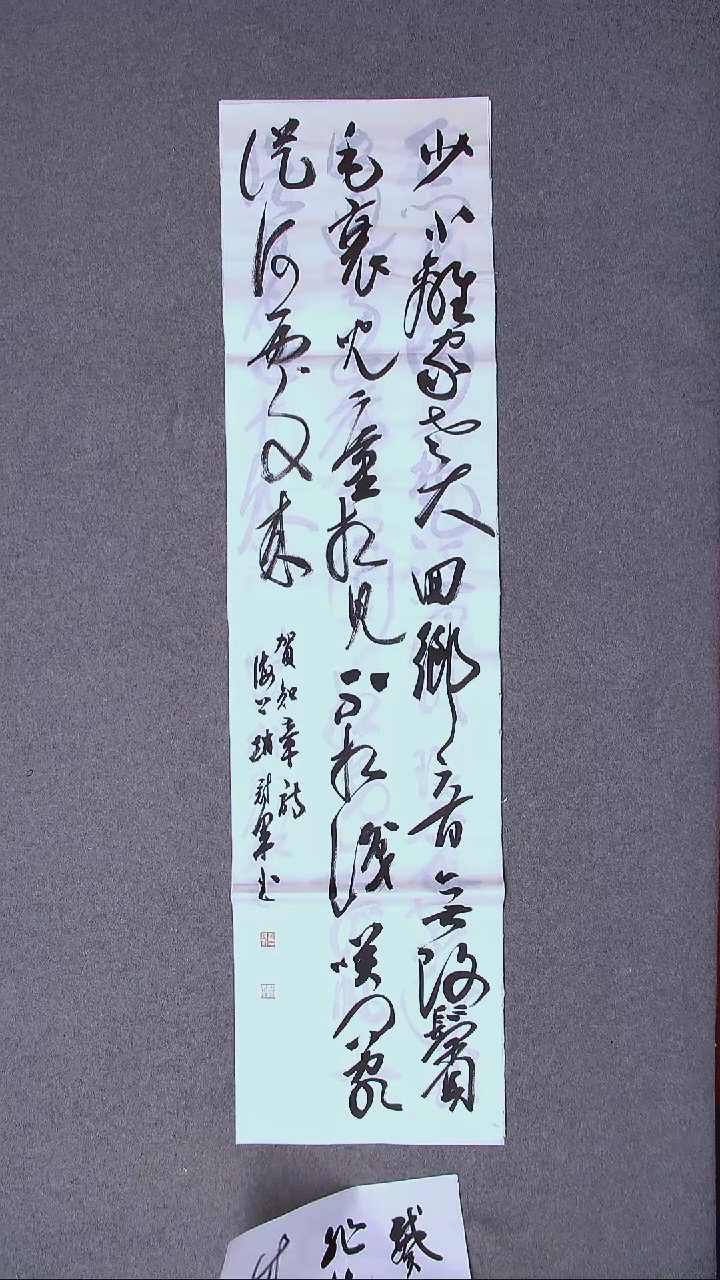 少小離家老大回鄉音無改鬢
毛衰兒童相見不相識咲問客
從何處来
賀知章詩
海上趙書